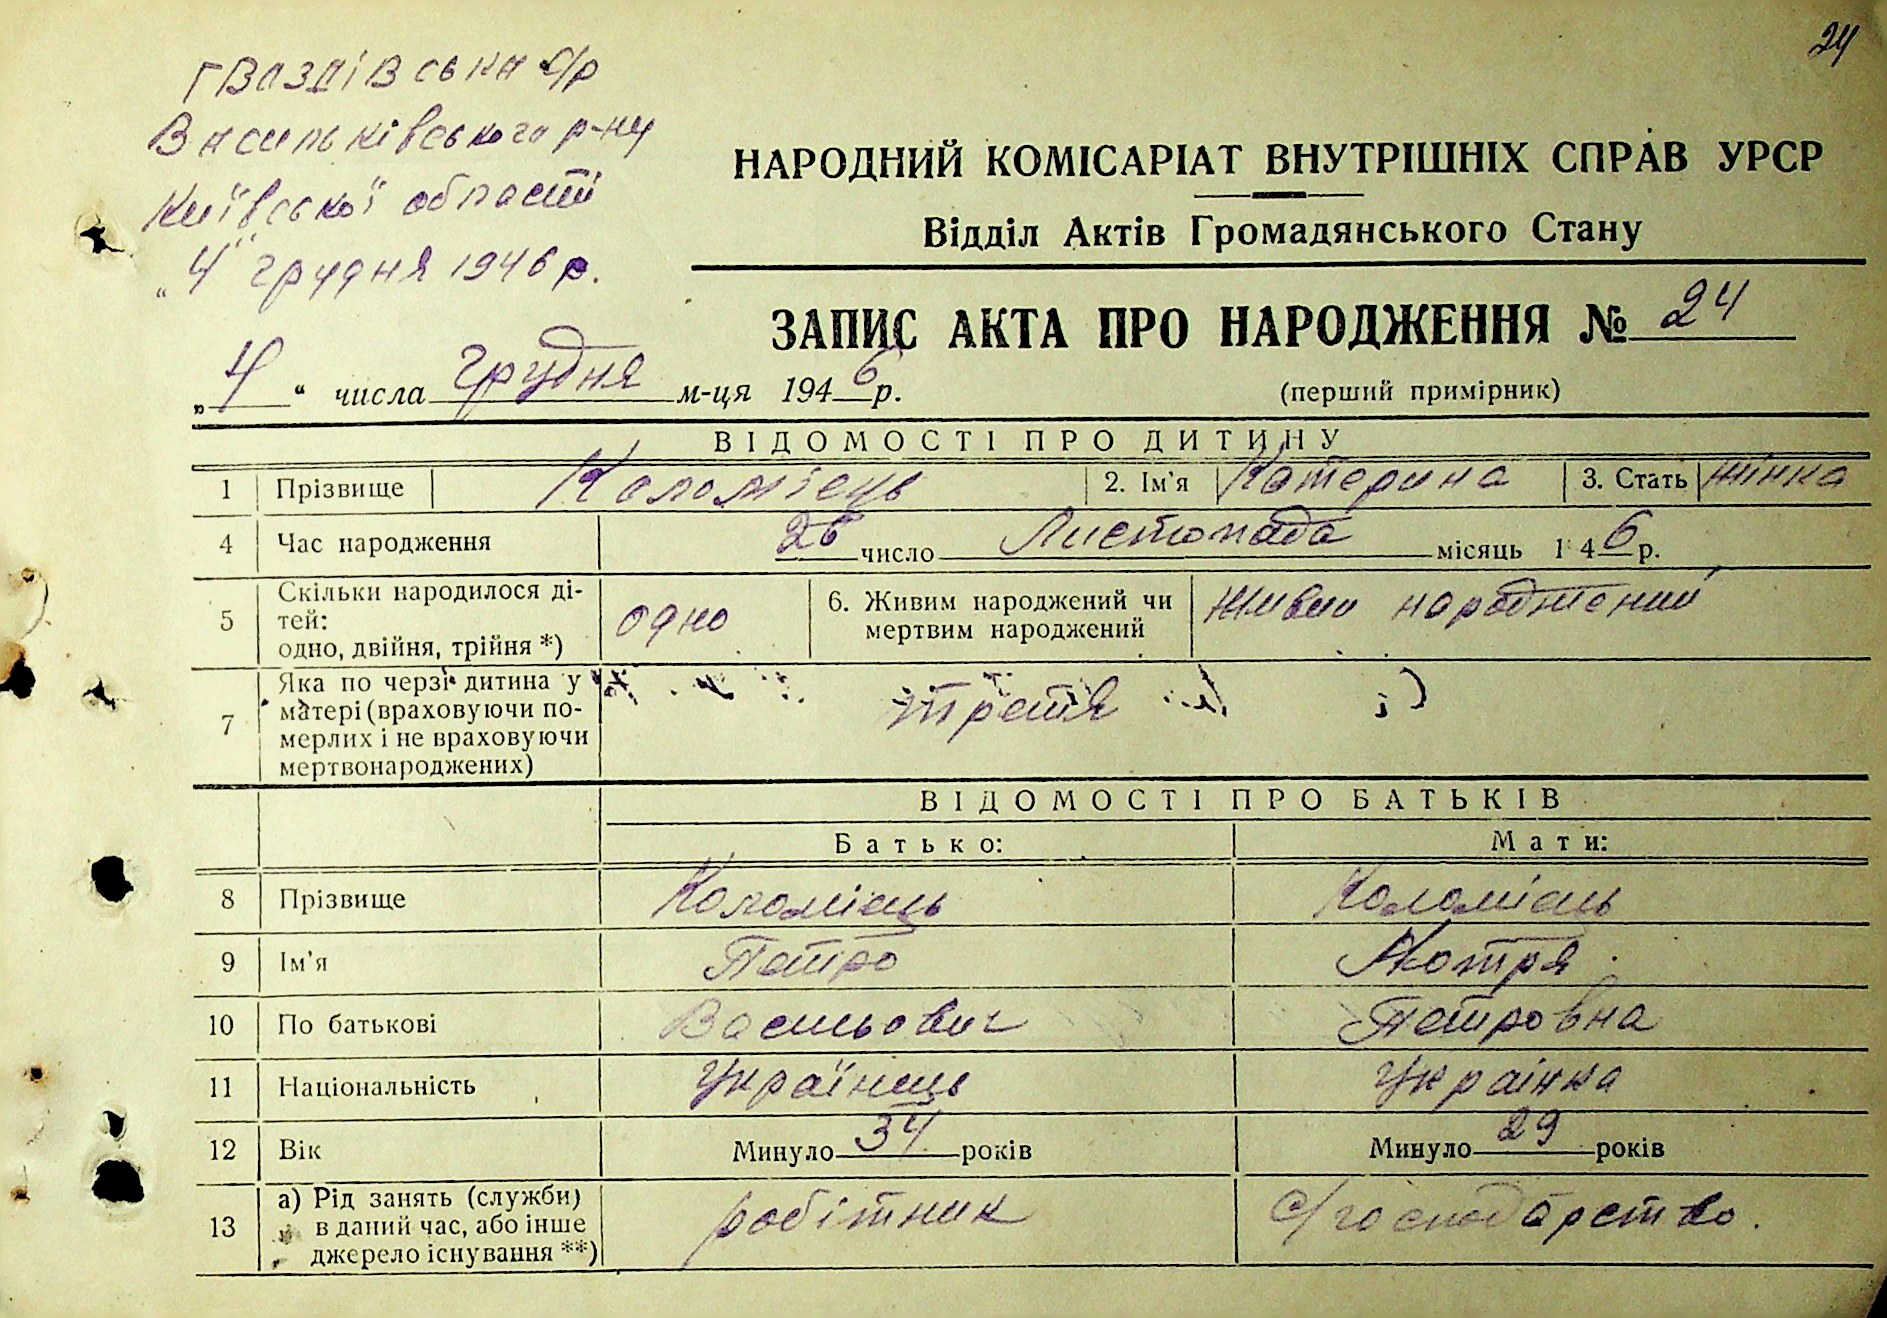 24
Гвоздівська с/р
Васильківського р-ну
Київської області
"4" грудня 1946 р.
НАРОДНИЙ КОМІСАРІАТ ВНУТРІШНІХ СПРАВ УРСР
Відділ Актів Громадянського Стану
ЗАПИС АКТА ПРО НАРОДЖЕННЯ № 24
„4“ числа грудня м-ця 1946 р.
(перший примірник)
ВІДОМОСТІ ПРО ДИТИНУ
1 Прізвище Коломієць 2. Ім'я Катерина 3. Стать жінка
4 Час народження 26 число Листопада місяць 1 46 р.
5 Скільки народилося ді-
тей:
одно, двійня, трійня *) одно 6. Живим народжений чи
мертвим народжений живий народжений
7 Яка по черзі дитина у
матері (враховуючи по-
мерлих і не враховуючи
мертвонароджених) третя
ВІДОМОСТІ ПРО БАТЬКІВ
Батько: Мати:
8 Прізвище Коломієць Коломієць
9 Ім'я Петро Мотря
10 По батькові Васильович Петровна
11 Національність Українець Украінка
12 Вік Минуло 34 років Минуло 29 років
13 а) Рід занять (служби)
в даний час, або інше
джерело існування **) робітник с/господарство.